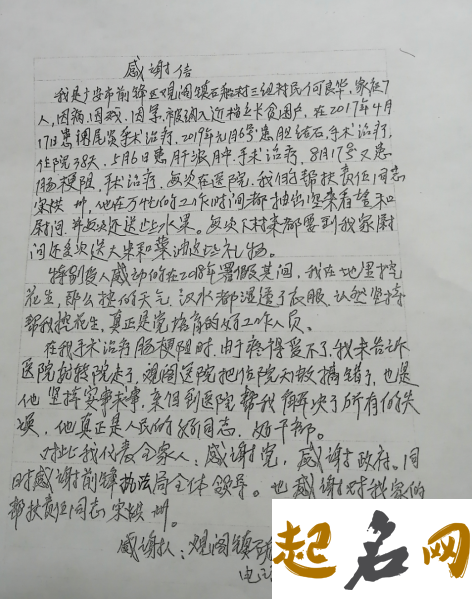 感谢信
我是广安市前锋区观阁镇石船村三组村民何良华,家庭7
人,因病,因残,因学,被纳入近档立卡贫困户,在2017年4月
17日患阑尾炎手术治疗,2019年元月6号患胆结石,手术治疗,
住院38天,上月6日患肝脓肿,手术治疗,8月17号又患
肠梗阻,手术治疗,每次在医院,我们的帮扶责任同志
宋 州,他在万忙的工作时间都抽出空来看望和
慰问,并每次还送上水果。每次下村来都要到我家慰
问还多次送大米和菜油这些礼物。
特别使人感动的在2018年署假其间,我在地里挖
花生,那么控的天气,汉水都湿透了衣服,认然坚持
帮我挖花生,真正是党培育的好工作人员。
在我手术治疗肠梗阻时,由于疼得受不了,我未告诉
医院就转院走了,观阁医院把住院天数搞错了,也是
他坚持实事求事,亲自到医院帮我解决了所有的失
误,他真正是人民的好同志,好干部。
对此我代表全家人:感谢党,感谢政府,同
时感谢前锋执法局全体领导。也感谢对我家的
帮扶责任同志宋 州。
感谢人:观阁镇石
电
起名网